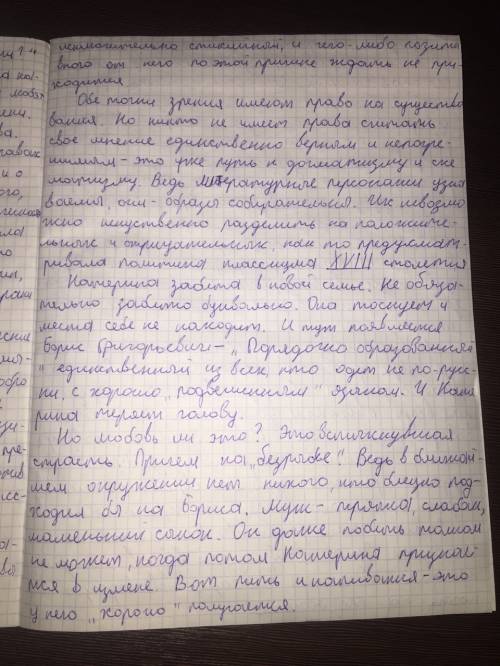 исключительно стихийный, и чего-либо позити
вного от него по этой причине ждать не при-
ходится.
Обе точки зрения имеют право на существо
вание. Но никто не имеет права считать
своё мнение единственно верным и непогре-
шимым - это уже путь к догматизму и схе
матизму. Ведь литературные персонажи узна
ваемы, они - образы собирательные. Их невозмо
жно искуственно разделить на положите-
льных и отрицательных, как то предусмат-
ривала политика классицизма XVIII столетия
Катерина забита в новой семье. Не обяза-
тельно забита буквально. Она тоскует и
места себе не находит. И тут появляется
Борис Григорьевич - „Порядочно образованный
" единственный из всех, кто одет не по-русс-
ки, с хорошо „подвешенным" языком. И Кате
рина теряет голову.
Но любовь ли это? Это вспыхнувшая
страсть. Причем на „безрыбье". Ведь в ближай-
шем окружении нет никого, кто близко под-
ходил бы на Бориса. Муж - тряпка, слабак,
маменькин сынок. Он даже побить толком
не может, когда потом Катерина признаё
тся в измене. Вот пить и напиваться - это
у него „хорошо" получается.